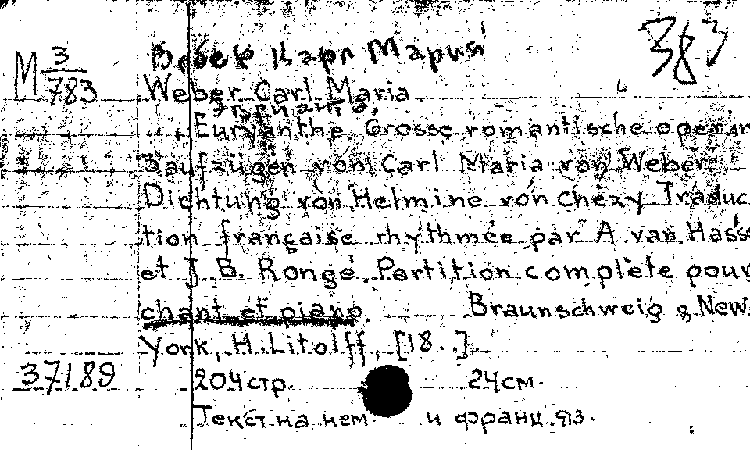 383
М 3/783
Вебер Карл Мария
Weber Carl Maria
Эврианта.
Euryanthe Grosse romantische oper in
3 aufzügen von Carl Maria von Weber
Dichtung von Helmine von Chezy Traduc
tion française rhythmée par A van Hass
et J. B. Rongé. Partition complète pour
chant et piano. Braunschweig & New.
York, H. Litolff, [18..].
37189 204 стр. 24 см.
Текст на нем. и франц. яз.